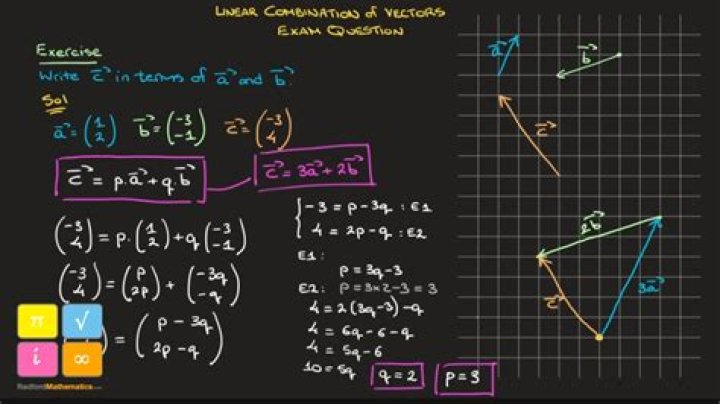 LINEAR COMBINATION of VECTORS
EXAM QUESTION
Exercise
Write c⃗ in terms of a⃗ and b⃗.
Sol
a⃗ = (1 2) b⃗ = (-3 -1) c⃗ = (-3 4)
c⃗ = p.a⃗ + q.b⃗
c⃗ = 3a⃗ + 2b⃗
(-3 4) = p.(1 2) + q(-3 -1)
(-3 4) = (p 2p) + (-3q -q)
= (p - 3q 2p - q)
{ -3 = p - 3q : E1
4 = 2p - q : E2
E1:
p = 3q - 3
E2: p = 3×2 - 3 = 3
4 = 2(3q - 3) - q
4 = 6q - 6 - q
4 = 5q - 6
10 = 5q
q = 2
p = 3
a⃗
b⃗
c⃗
2b⃗
3a⃗
c⃗
π √
i ∞
RadfordMathematics.com